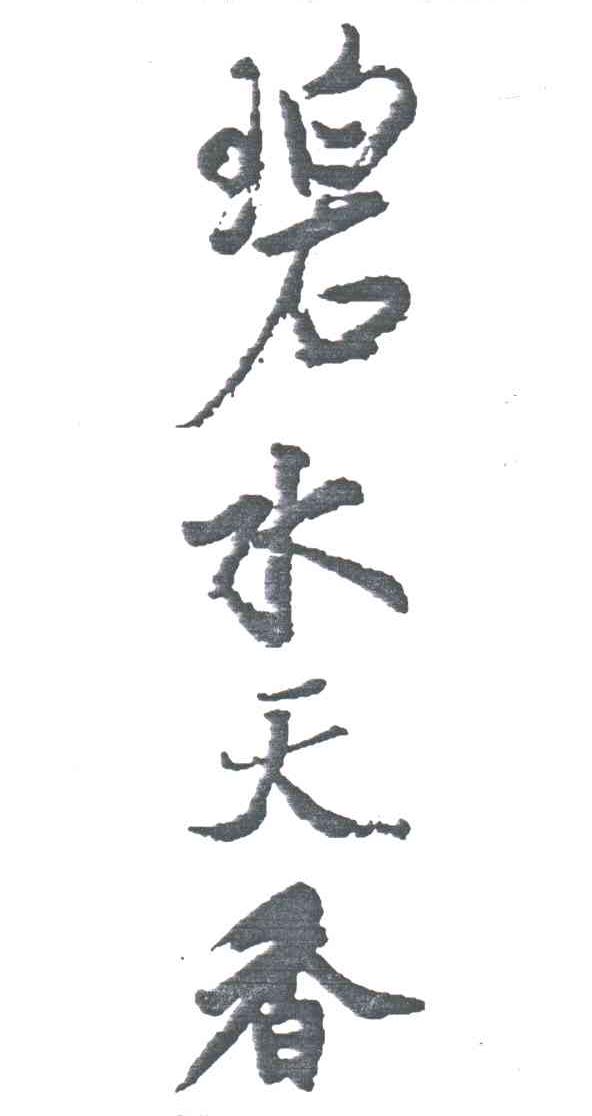 碧水天香